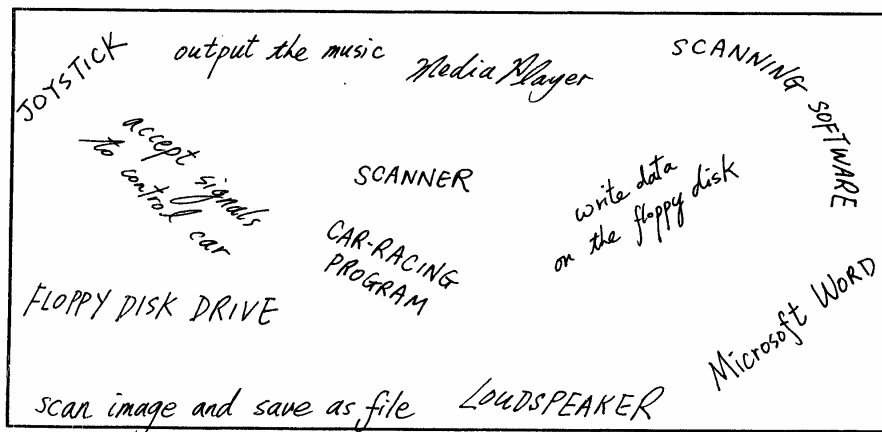 JOYSTICK
output the music
Media Player
SCANNING SOFTWARE
accept signals
to control car
SCANNER
write data
on the floppy disk
CAR-RACING
PROGRAM
FLOPPY DISK DRIVE
Microsoft WORD
scan image and save as file
LOUDSPEAKER